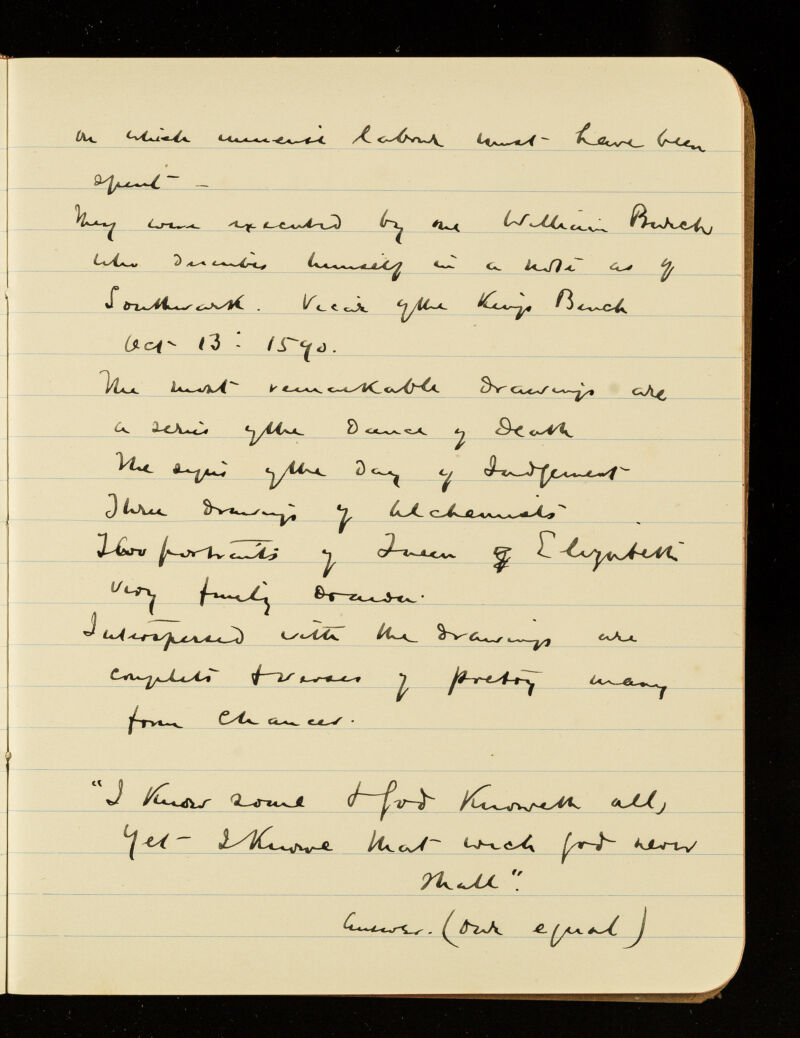 on which immense labour must have been
spent -
They were executed by one William
who describes himself in a note as of
Southwark. of the Kings Bench
Oct 13: 1590.
The most remarkable drawings are
a series of the Dance of Death
The signs of the Day of Judgement
Three drawings of Alchemists
Two portraits of Queen Elizabeth
very finely drawn.
Interspersed with the drawings are
couplets & verses of poetry many
from Chaucer.
"I know some & God knoweth all,
Yet I knowe that wich God never
shall".
Answer. (our equal)